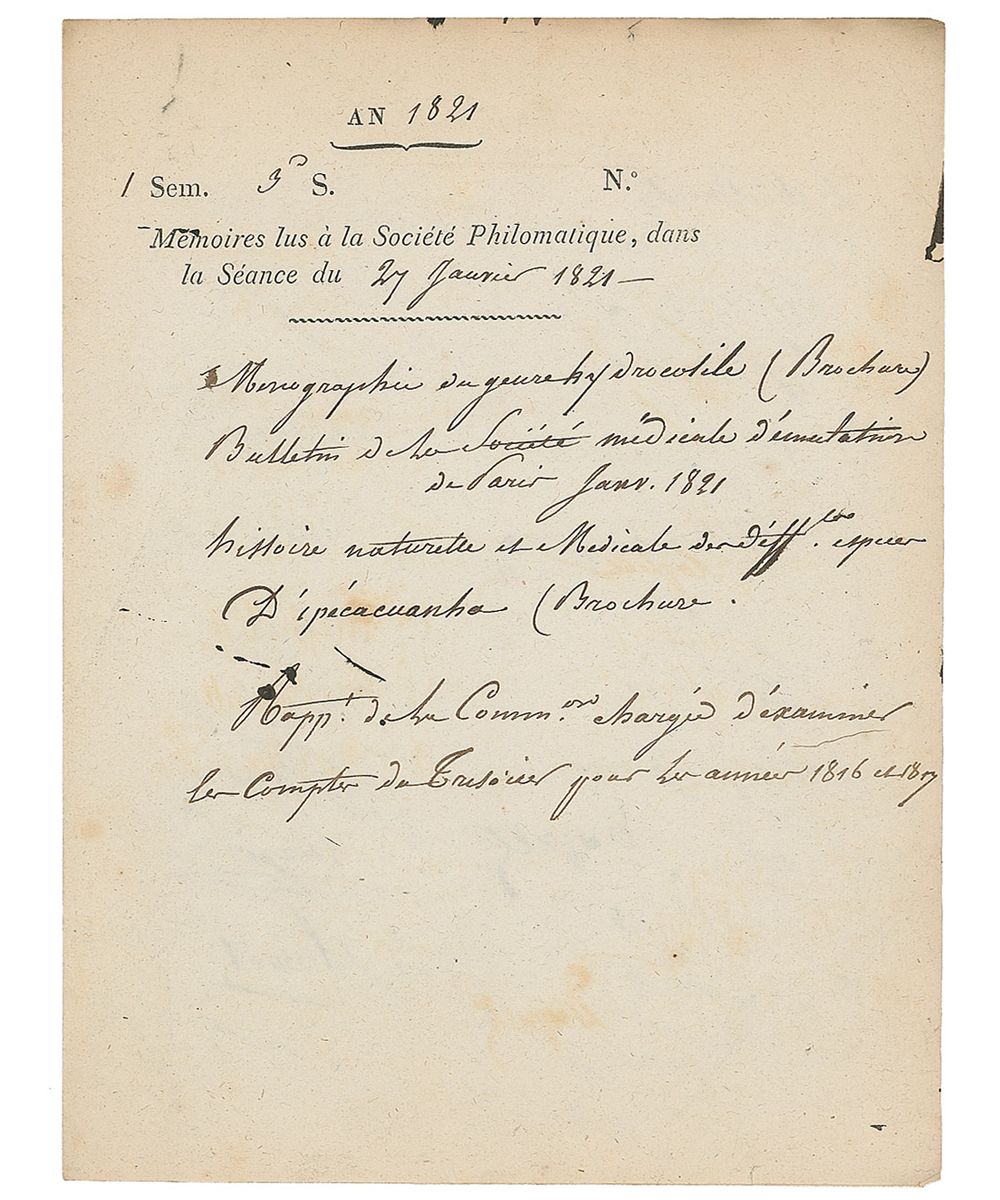 AN 1821
1 Sem. 3e S. N.o
Mémoires lus à la Société Philomatique, dans
la Séance du 27 Janvier 1821 —
Monographie du genre hydrocotile (Brochure)
Bulletin de la Société médicale d'émulation
de Paris Janv. 1821
histoire naturelle et Medicale des diff.tes espèces
D'ipécacuanha (Brochure.
Rapp.t de la Comm.on chargée d'éxaminer
les Comptes du Trésorier pour les années 1816 et 1817